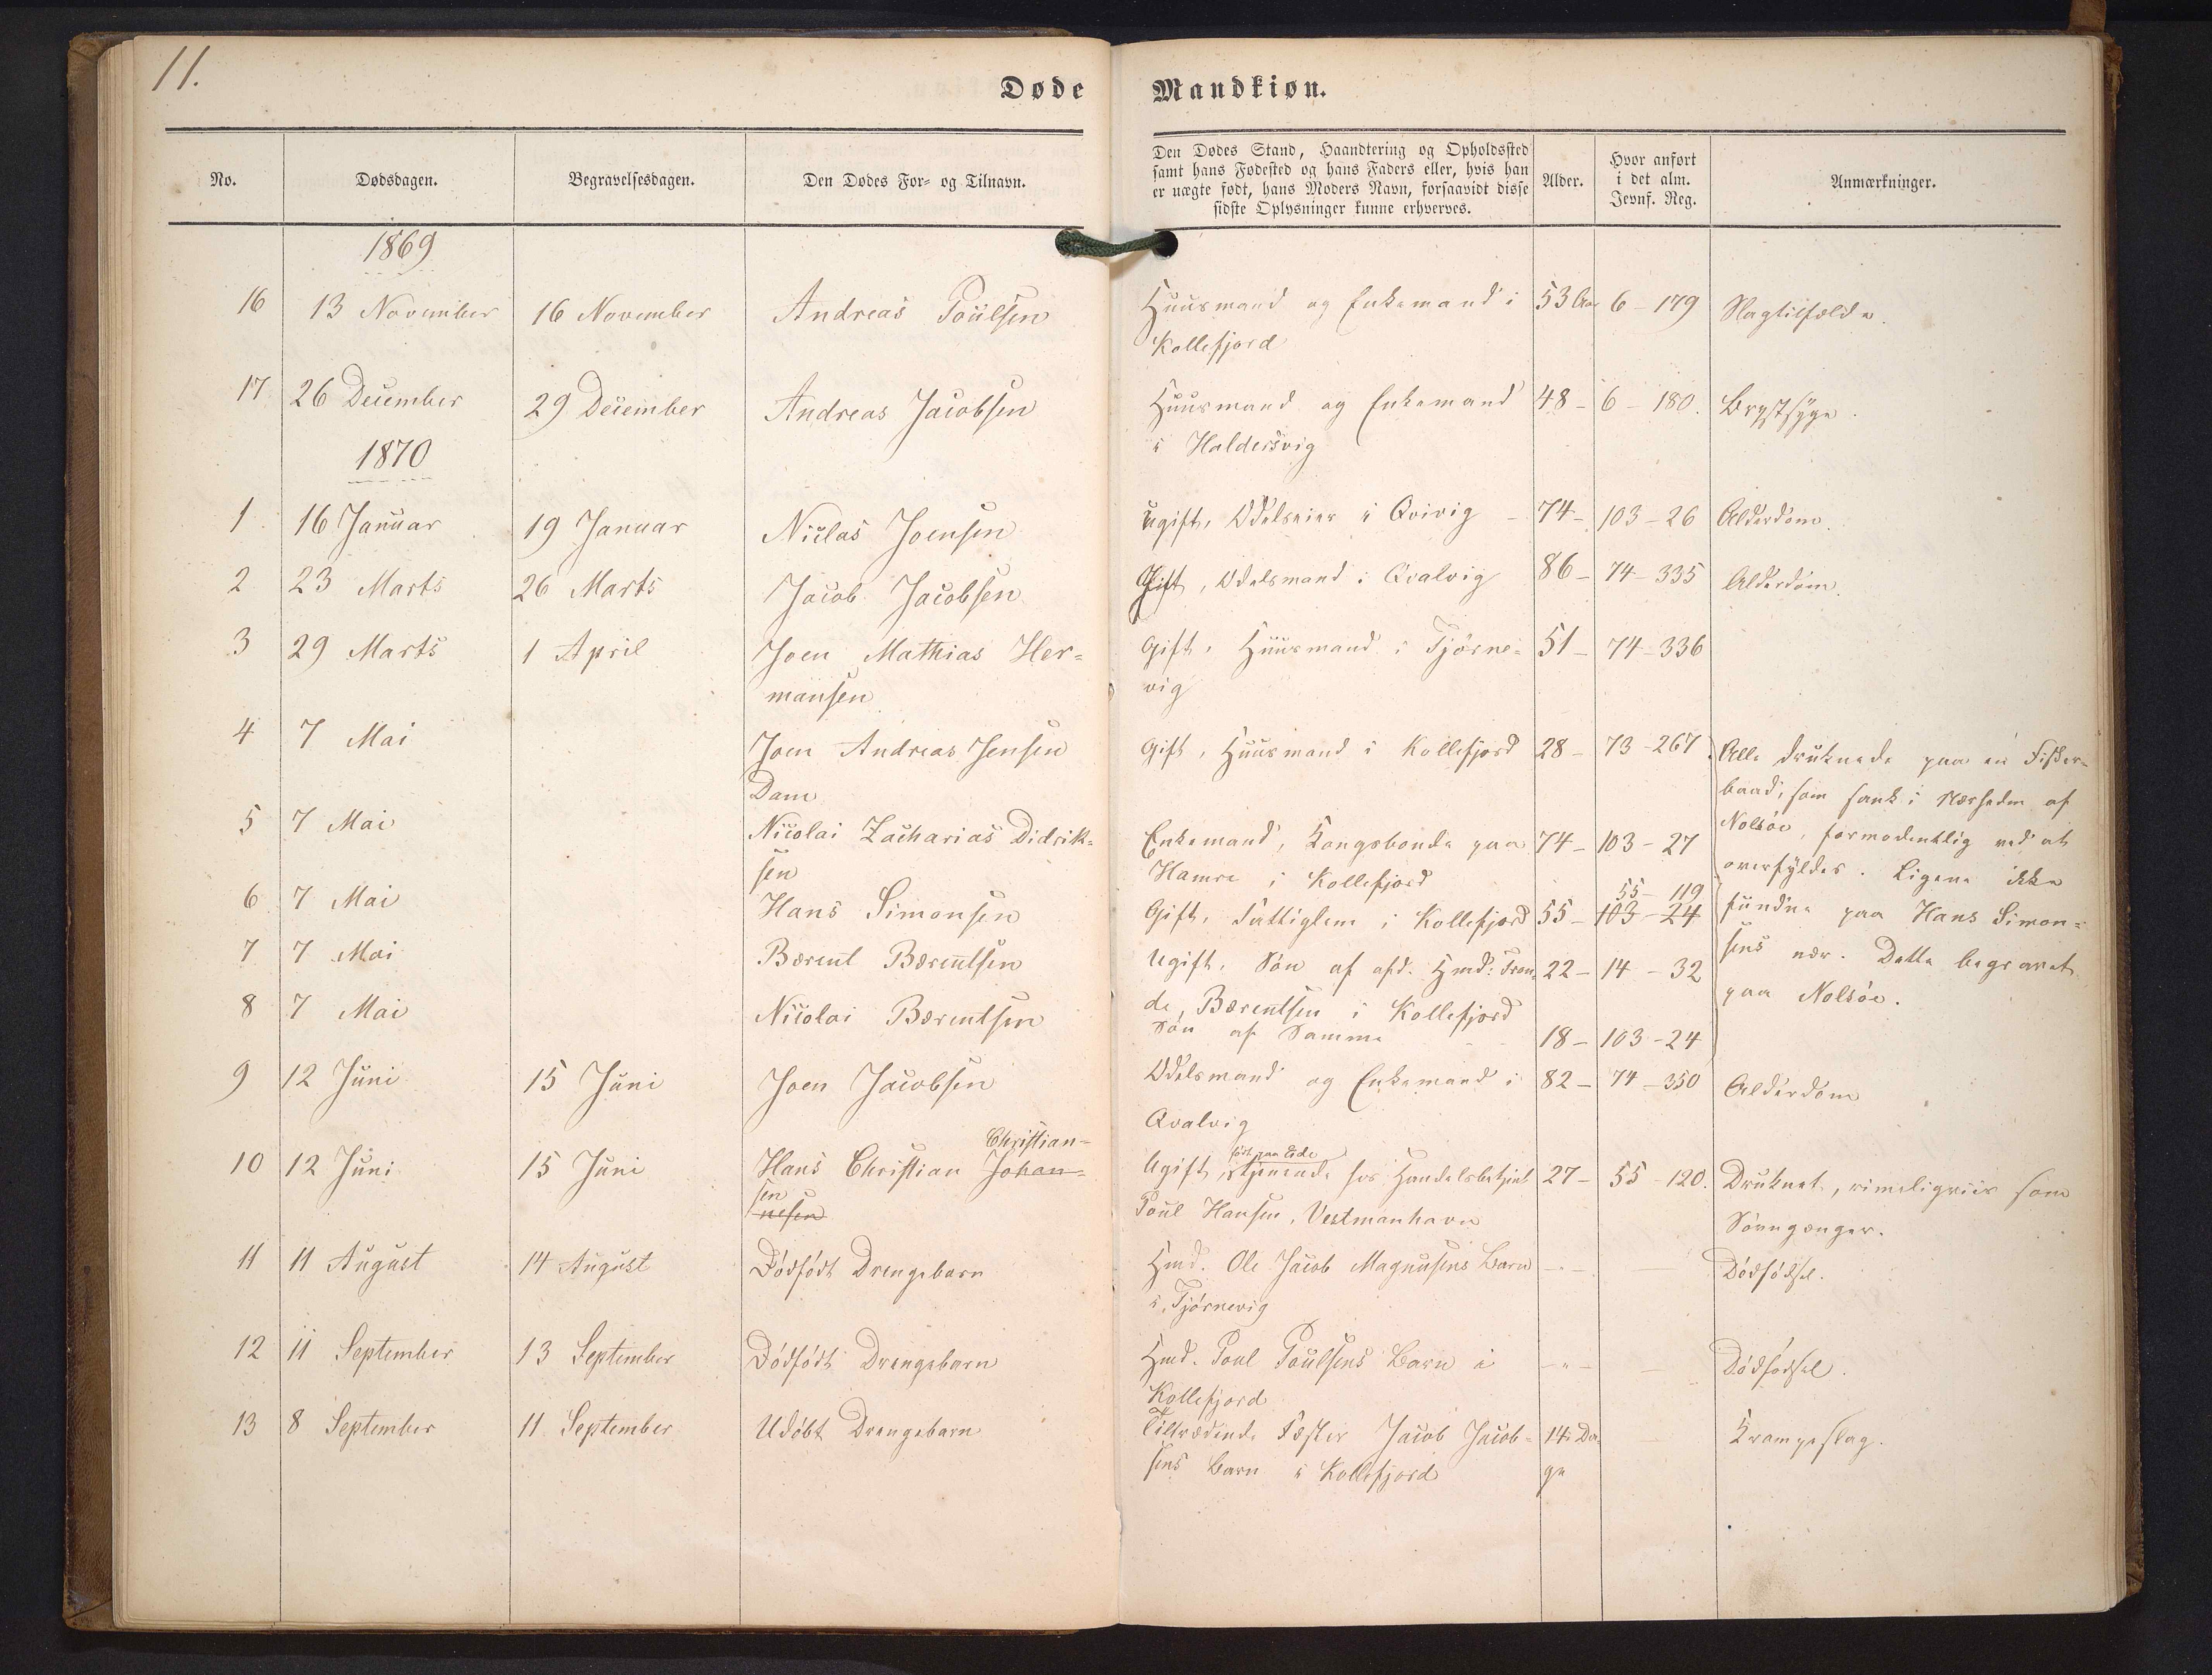 11.
Døde Mandkiøn.
No.
Dødsdagen.
Begravelsesdagen.
Den Dødes For- og Tilnavn.
Den Dødes Stand, Haandtering og Opholdssted
samt hans Fødested og hans Faders eller, hvis han
er uægte født, hans Moders Navn, forsaavidt disse
sidste Oplysninger kunne erhverves.
Alder.
Hvor anført
i det alm.
Jevnf. Reg.
Anmærkninger.
1869
16 13 November 16 November Andreas Poülsen Huusmand og Enkemand i 53 Aar 6-179 Slagtilfælde.
Kollefjord
17 26 December 29 December Andreas Jacobsen Huusmand og Enkemand 48- 6-180. Brystsyge.
i Haldersvig
1870
1 16 Januar 19 Januar Niclas Joensen ugift, Odelseier i Qvivig - 74- 103-26 Alderdom.
2 23 Marts 26 Marts Jacob Jacobsen Gift, Odelsmand i Qvalvig 86- 74-335 Alderdom.
3 29 Marts 1 April Joen Mathias Her= Gift, Huusmand i Tjørne= 51- 74-336
mansen vig
4 7 Mai Joen Andreas Jensen Gift, Huusmand i Kollefjord 28- 73-267 Alle druknede paa en Fisker=
Dam baad, som sank i Nærheden af
5 7 Mai Nicolai Zacharias Didrik= Enkemand, Kongsbonde paa 74- 103-27 Nolsøe, formodentlig ved at
sen Hamre i Kollefjord overfyldes. Ligene ikke
55-119
6 7 Mai Hans Simonsen Gift, Fattiglem i Kollefjord 55- 103-24 fundne paa Hans Simon=
7 7 Mai Bærent Bærentsen Ugift, Søn af afd. Hmd: Tron= 22- 14-32 sens nær. Dette begravet
de, Bærentsen i Kollefjord paa Nolsøe.
8 7 Mai Nicolai Bærentsen Søn af Samme 18- 103-24
9 12 Juni 15 Juni Joen Jacobsen Odelsmand og Enkemand i 82- 74-350 Alderdom
Qvalvig
Christian=
født paa Eide
10 12 Juni 15 Juni Hans Christian Johan= Ugift, tjenende hos Handelsbetjent 27- 55-120. Druknet, rimeligviis som
sen
nesen Poul Hansen, Vestmanhavn Søvngænger.
11 11 August 14 August Dødfødt Drengebarn Hmd. Ole Jacob Magnusens Barn - - Dødfødsel.
i Tjørnevig
12 11 September 13 September Dødfødt Drengebarn Hmd. Poul Poulsens Barn i - " - Dødfødsel.
Kollefjord
13 8 September 11 September Udøbt Drengebarn Tiltrædende Fæster Jacob Jacob= 14 Da= Krampeslag.
sens Barn i Kollefjord ge